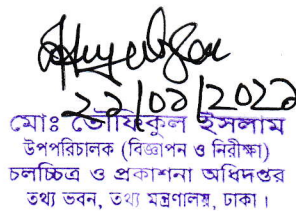 মোঃ তৌফিকুল ইসলাম
উপপরিচালক (বিজ্ঞাপন ও নিরীক্ষা)
চলচ্চিত্র ও প্রকাশনা অধিদপ্তর
তথ্য ভবন, তথ্য মন্ত্রণালয়, ঢাকা।